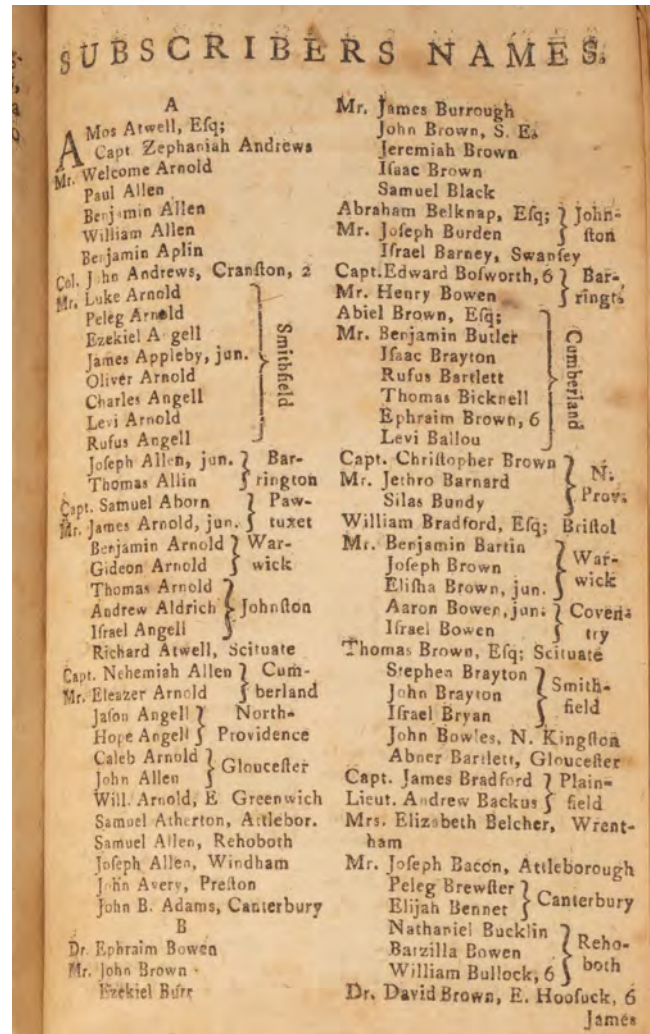 SUBSCRIBERS NAMES.
A
AMos Atwell, Eſq;
Capt Zephaniah Andrews
Mr. Welcome Arnold
Paul Allen
Benjamin Allen
William Allen
Benjamin Aplin
Col. John Andrews, Cranſton, 2
Mr. Luke Arnold
Peleg Arnold
Ezekiel A gell
James Appleby, jun.
Oliver Arnold
Charles Angell
Levi Arnold
Rufus Angell
Smithfield
Joſeph Allen, jun. } Bar-
Thomas Allin } rington
Capt. Samuel Aborn } Paw-
Mr. James Arnold, jun. } tuxet
Benjamin Arnold } War-
Gideon Arnold } wick
Thomas Arnold
Andrew Aldrich } Johnſton
Iſrael Angell
Richard Atwell, Scituate
Capt. Nehemiah Allen } Cum-
Mr. Eleazer Arnold } berland
Jaſon Angell } North-
Hope Angell } Providence
Caleb Arnold } Glouceſter
John Allen
Will. Arnold, E Greenwich
Samuel Atherton, Attlebor.
Samuel Allen, Rehoboth
Joſeph Allen, Windham
John Avery, Preſton
John B. Adams, Canterbury
B
Dr. Ephraim Bowen
Mr. John Brown
Ezekiel Burr
Mr. James Burrough
John Brown, S. E.
Jeremiah Brown
Iſaac Brown
Samuel Black
Abraham Belknap, Eſq; } John-
Mr. Joſeph Borden } ſton
Iſrael Barney, Swanſey
Capt. Edward Boſworth, 6 } Bar-
Mr. Henry Bowen } ringt.
Abiel Brown, Eſq;
Mr. Benjamin Butler
Iſaac Brayton
Rufus Bartlett
Thomas Bicknell
Ephraim Brown, 6
Levi Ballou
Cumberland
Capt. Chriſtopher Brown
Mr. Jethro Barnard } N.
Silas Bundy } Prov.
William Bradford, Eſq; Briſtol
Mr. Benjamin Bartin
Joſeph Brown } War-
Eliſha Brown, jun. } wick
Aaron Bowen, jun. } Coven-
Iſrael Bowen } try
Thomas Brown, Eſq; Scituate
Stephen Brayton
John Brayton } Smith-
Iſrael Bryan } field
John Bowles, N. Kingſton
Abner Bartlett, Glouceſter
Capt. James Bradford } Plain-
Lieut. Andrew Backus } field
Mrs. Elizabeth Belcher, Wrent-
ham
Mr. Joſeph Bacon, Attleborough
Peleg Brewſter } Canterbury
Elijah Bennet
Nathaniel Bucklin
Barzilla Bowen } Reho-
William Bullock, 6 } both
Dr. David Brown, E. Hooſuck, 6
James